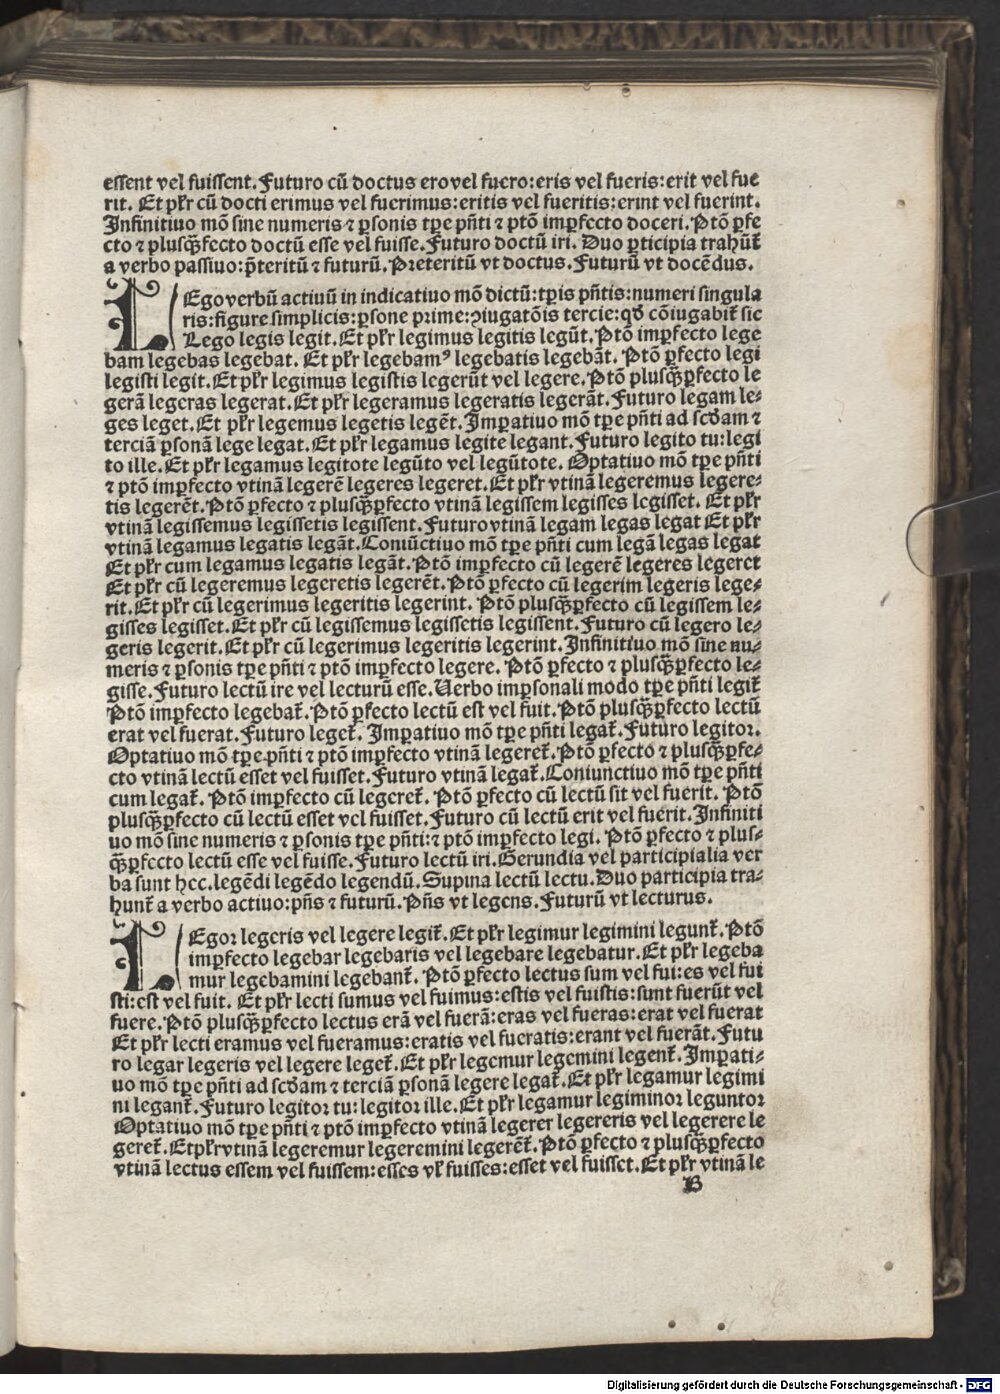 essent vel fuissent. Futuro cū doctus ero vel fuero: eris vel fueris: erit vel fue
rit. Et pl̄r cū docti erimus vel fuerimus: eritis vel fueritis: erint vel fuerint.
Infinitiuo mō sine numeris ⁊ ꝑsonis tꝑe p̄nti ⁊ p̄tō imꝑfecto doceri. P̄tō ꝑfe
cto ⁊ plusq̄ꝑfecto doctū esse vel fuisse. Futuro doctū iri. Duo ꝑticipia trahūt̄
a verbo passiuo: p̄teritū ⁊ futurū. Preteritū vt doctus. Futurū vt docēdus.
LEgo verbū actiuū in indicatiuo mō dictū: tꝑis p̄ntis: numeri singula
ris: figure simplicis: ꝑsone prime: ꝯiugatōis tercie: qđ cōiugabit̄ sic
Lego legis legit. Et pl̄r legimus legitis legūt. P̄tō imꝑfecto lege
bam legebas legebat. Et pl̄r legebamꝰ legebatis legebāt. P̄tō ꝑfecto legi
legisti legit. Et pl̄r legimus legistis legerūt vel legere. P̄tō plusq̄ꝑfecto le
gerā legeras legerat. Et pl̄r legeramus legeratis legerāt. Futuro legam le⸗
ges leget. Et pl̄r legemus legetis legēt. Imꝑatiuo mō tꝑe p̄nti ad scđam ⁊
terciā ꝑsonā lege legat. Et pl̄r legamus legite legant. Futuro legito tu: legi
to ille. Et pl̄r legamus legitote legūto vel legūtote. Optatiuo mō tꝑe p̄nti
⁊ p̄tō imꝑfecto vtinā legerē legeres legeret. Et pl̄r vtinā legeremus legere⸗
tis legerēt. P̄tō ꝑfecto ⁊ plusq̄ꝑfecto vtinā legissem legisses legisset. Et pl̄r
vtinā legissemus legissetis legissent. Futuro vtinā legam legas legat Et pl̄r
vtinā legamus legatis legāt. Coniūctiuo mō tꝑe p̄nti cum legā legas legat
Et pl̄r cum legamus legatis legāt. P̄tō imꝑfecto cū legerē legeres legeret
Et pl̄r cū legeremus legeretis legerēt. P̄tō ꝑfecto cū legerim legeris lege⸗
rit. Et pl̄r cū legerimus legeritis legerint. P̄tō plusq̄ꝑfecto cū legissem le⸗
gisses legisset. Et pl̄r cū legissemus legissetis legissent. Futuro cū legero le⸗
geris legerit. Et pl̄r cū legerimus legeritis legerint. Infinitiuo mō sine nu⸗
meris ⁊ ꝑsonis tꝑe p̄nti ⁊ p̄tō imꝑfecto legere. P̄tō ꝑfecto ⁊ plusq̄ꝑfecto le⸗
gisse. Futuro lectū ire vel lecturū esse. Verbo imꝑsonali modo tꝑe p̄nti legit̄
P̄tō imꝑfecto legebat̄. P̄tō ꝑfecto lectū est vel fuit. P̄tō plusq̄ꝑfecto lectū
erat vel fuerat. Futuro leget̄. Imꝑatiuo mō tꝑe p̄nti legat̄. Futuro legitor.
Optatiuo mō tꝑe p̄nti ⁊ p̄tō imꝑfecto vtinā legeret̄. P̄tō ꝑfecto ⁊ plusq̄ꝑfe⸗
cto vtinā lectū esset vel fuisset. Futuro vtinā legat̄. Coniunctiuo mō tꝑe p̄nti
cum legat̄. P̄tō imꝑfecto cū legeret̄. P̄tō ꝑfecto cū lectū sit vel fuerit. P̄tō
plusq̄ꝑfecto cū lectū esset vel fuisset. Futuro cū lectū erit vel fuerit. Infiniti
uo mō sine numeris ⁊ ꝑsonis tꝑe p̄nti: ⁊ p̄tō imꝑfecto legi. P̄tō ꝑfecto ⁊ plus⸗
q̄ꝑfecto lectū esse vel fuisse. Futuro lectū iri. Gerundia vel participialia ver
ba sunt hec. legēdi legēdo legendū. Supina lectū lectu. Duo participia tra⸗
hunt̄ a verbo actiuo: p̄ns ⁊ futurū. P̄ns vt legens. Futurū vt lecturus.
LEgor legeris vel legere legit̄. Et pl̄r legimur legimini legunt̄. P̄tō
imꝑfecto legebar legebaris vel legebare legebatur. Et pl̄r legeba
mur legebamini legebant̄. P̄tō ꝑfecto lectus sum vel fui: es vel fui
sti: est vel fuit. Et pl̄r lecti sumus vel fuimus: estis vel fuistis: sunt fuerūt vel
fuere. P̄tō plusq̄ꝑfecto lectus erā vel fuerā: eras vel fueras: erat vel fuerat
Et pl̄r lecti eramus vel fueramus: eratis vel fueratis: erant vel fuerāt. Futu
ro legar legeris vel legere leget̄. Et pl̄r legemur legemini legent̄. Imꝑati⸗
uo mō tꝑe p̄nti ad scđam ⁊ terciā ꝑsonā legere legat̄. Et pl̄r legamur legimi
ni legant̄. Futuro legitor tu: legitor ille. Et pl̄r legamur legiminor leguntor
Optatiuo mō tꝑe p̄nti ⁊ p̄tō imꝑfecto vtinā legerer legereris vel legerere le
geret̄. Et pl̄r vtinā legeremur legeremini legerēt̄. P̄tō ꝑfecto ⁊ plusq̄ꝑfecto
vtinā lectus essem vel fuissem: esses vl̄ fuisses: esset vel fuisset. Et pl̄r vtinā le
B
Digitalisierung gefördert durch die Deutsche Forschungsgemeinschaft - DFG